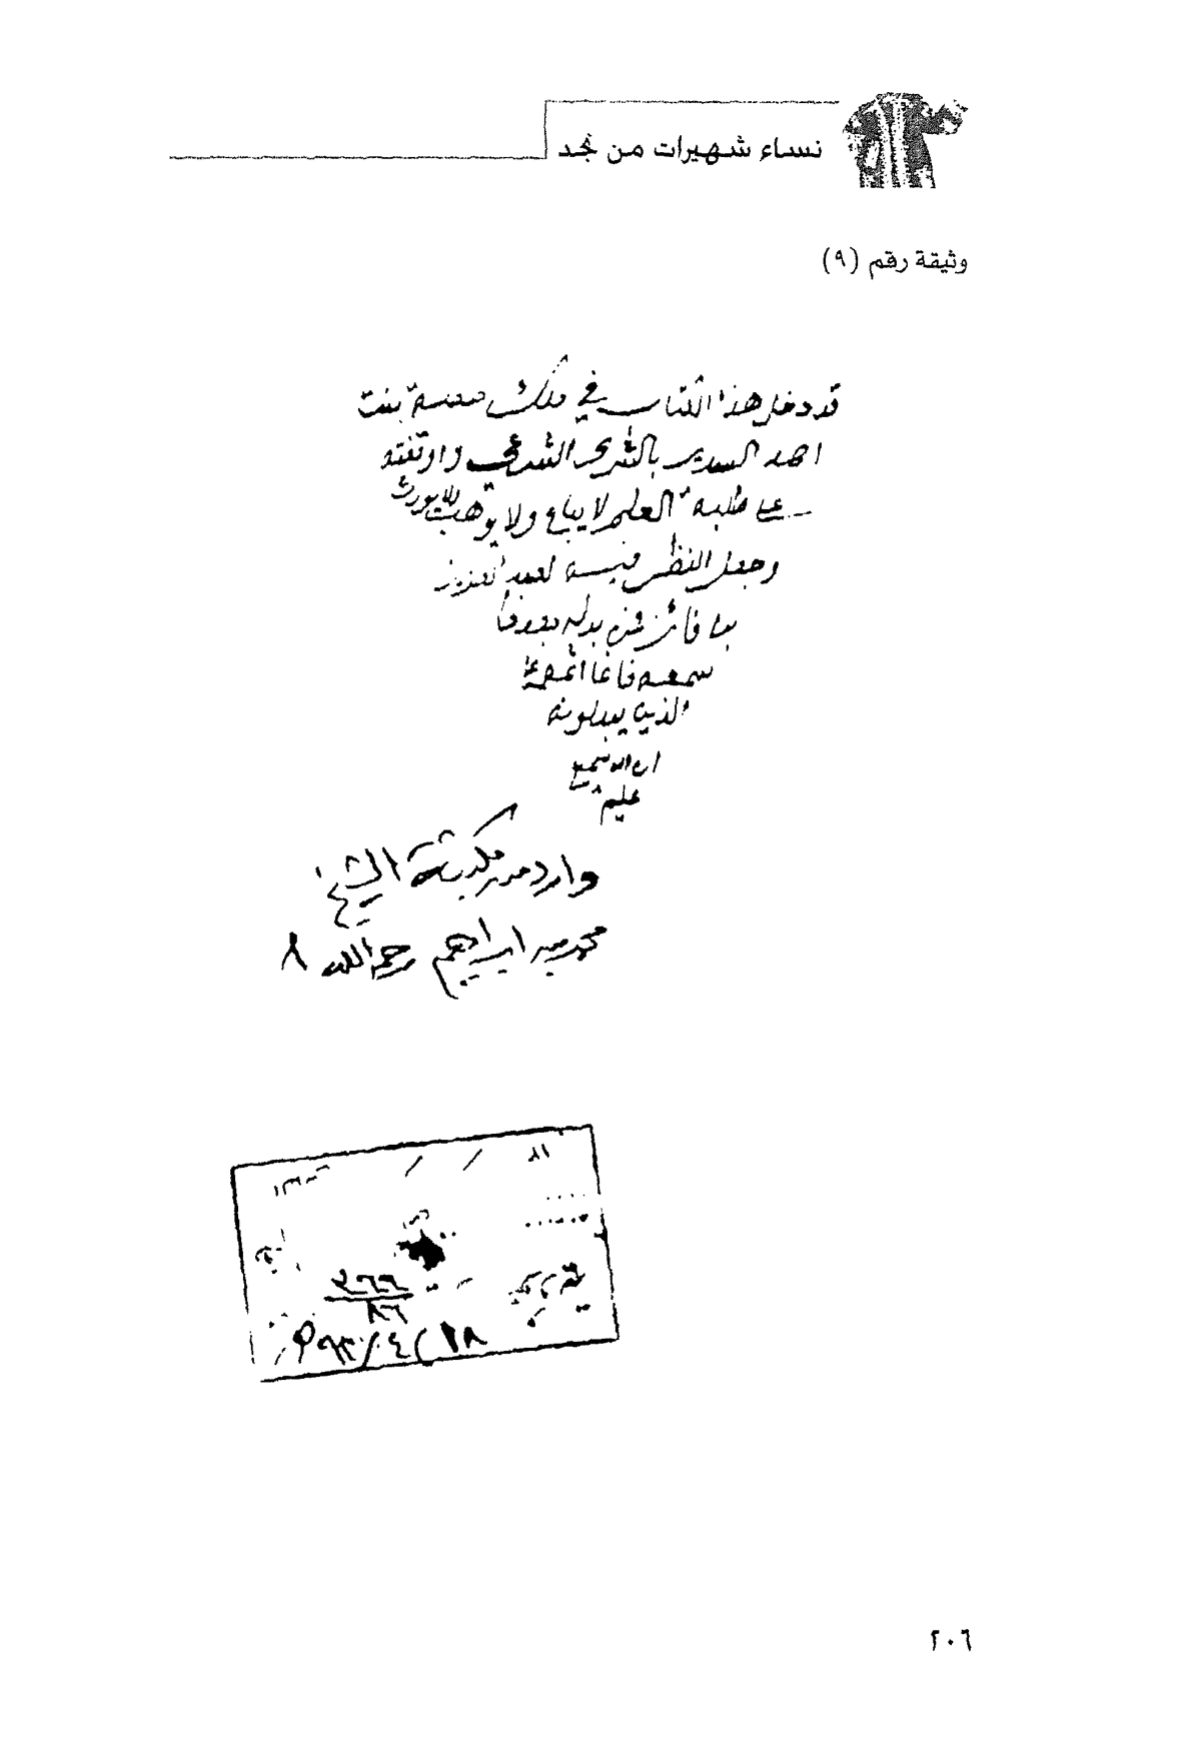 نساء شهيرات من نجد
وثيقة رقم (٩)
قد دخل هذا الكتاب في ملك بنت
احمد السديري بالشرى الشرعي واوقفته
على طلبة العلم لا يباع ولا يوهب ولا يورث
وجعل النظر فيه لعبد العزيز
بن فائز فمن بدله بعدما
سمعه فانما اثمه على
الذين يبدلونه
ان الله سميع
عليم
وارد من مكتبة الشيخ
محمد بن ابراهيم رحمه الله ٨
٢٦٦
٨٦
٢٠٦